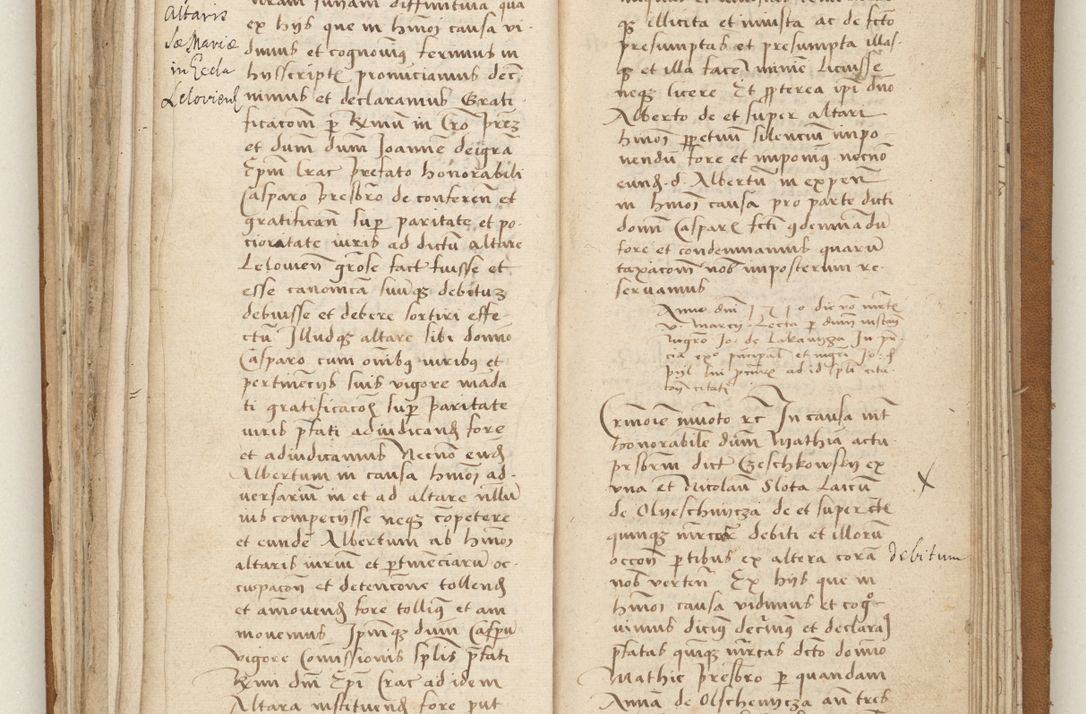 Altaris
Sæ Mariæ
in Eccla
Leloviens
ex hijs que in hmoi causa vi
dimus et cognovimus ferimus in
hijs scriptis pronunciamus dec
nimus et declaramus Grati
ficacom p R mum in Cro prem
et dum dum Joanne dei gra
Epm Crac prefato honorabili
Casparo presbro de conferen et
gratifican sup paritate et po
cioritate iuris ad dictu altare
Lelovien grose fact fuisse et
esse canonica suuqz debitu
debuisse et debere sortiri effe
ctu Illudqz altare sibi domino
Casparo cum onibus iuribus et
pertinencijs suis vigore manda
ti gratificacois sup paritate
iuris pfati adiudicand fore
et adiudicamus Necno eund
Albertum in causa hmoi ad
versarium in et ad altare nullu
ius competijsse neqz competere
et eundem Albertum ab hmoi
altaris iurium et ptinenciaru oc
cupacon et detencione tollend
et amovend fore tollimus et am
movemus Ipmqz dum Caspu
vigore Comissionis splis pfati
Rmi dni Epi Crac ad idem
Altare instituend fore put
qz illicita et iniusta ac de fcto
presumptas et presumpta illas
qz et illa facere minime licuisse
neqz licere Et propterea ipi dno
Alberto de et super altari
hmoi ppetuum silencium impo
nendu fore et imponimus necno
eund d Albertu in expen
in hmoi causa pro parte dicti
domini Caspari fcti condemnadu
fore et condemnamus quaru
taxacom nob imposterum re
servamus
Anno dni die
v Marcij Lecta p dnum
nigro Jo de Lakawyza In
cia principal et nigri Jo
ad id spli cita
con citati
Crimoie invoto rc In causa int
honorabile dum Mathia actu
presbrm dict Czeschkowsky ex
vna et Nicolaum Slota Laicu
de Olyeschnycza de et super certe
quinqz mrcar debiti et illoru
occon ptibus ex altera cora
debitum
nob verten Ex hijs que in
hmoi causa vidimus et cog
vimus dicimus decernimus et declaram
pfatas quinqz mrcas dcto domino
Mathie presbro p quandam
Anna de Olschenycza an tres